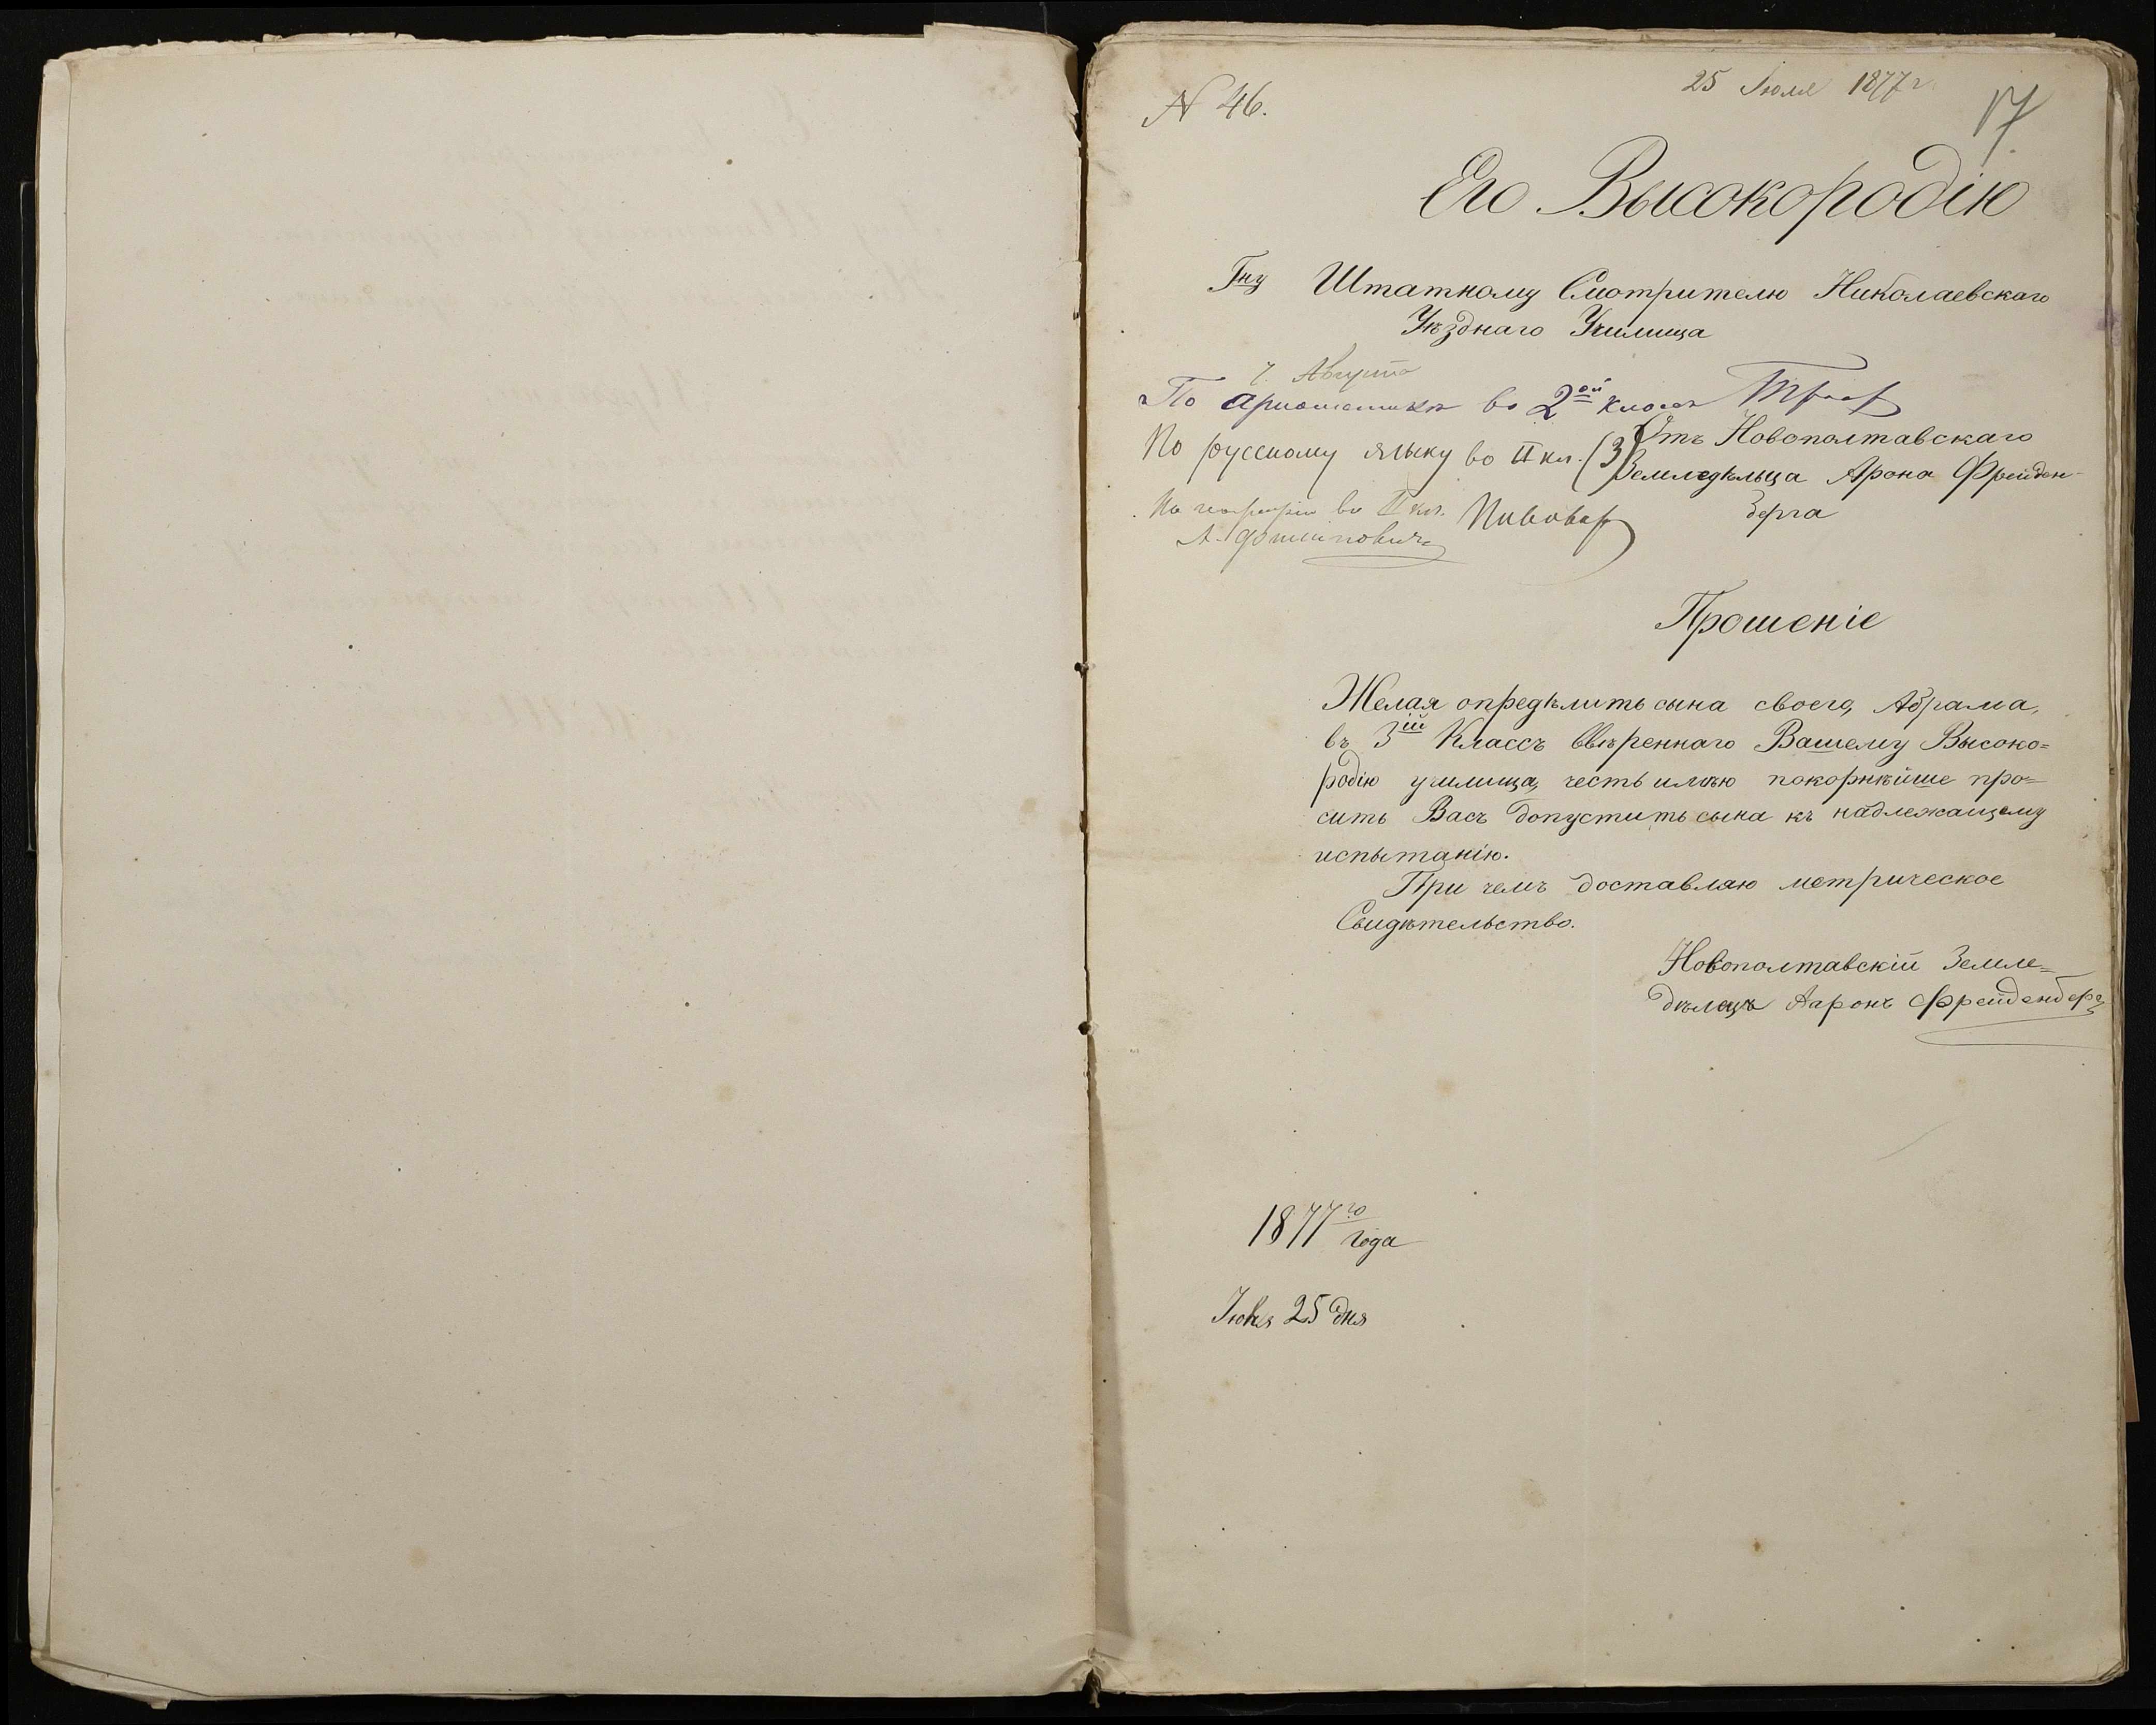 N 46.
25 Июля 1877 г.
17
Его Высокородію
Гну Штатному Смотрителю Николаевскаго
Уѣзднаго Училища
7. Августа
По ариѳметикѣ во 2ой классъ
По русскому языку во II кл. (3)
Отъ Новополтавскаго
Земледѣльца Арона Фрейден-
берга
По географіи во II кл.
Пивовар
Прошеніе
Желая опредѣлить сына своего, Абрама,
въ 3ій Классъ ввѣреннаго Вашему Высоко=
родію училища, честь имѣю покорнѣйше про=
сить Васъ допустить сына къ надлежащему
испытанію.
При чемъ доставляю метрическое
Свидѣтельство.
Новополтавскій Земле=
дѣлецъ Ааронъ Фрейденберг
1877го
года
25 дня